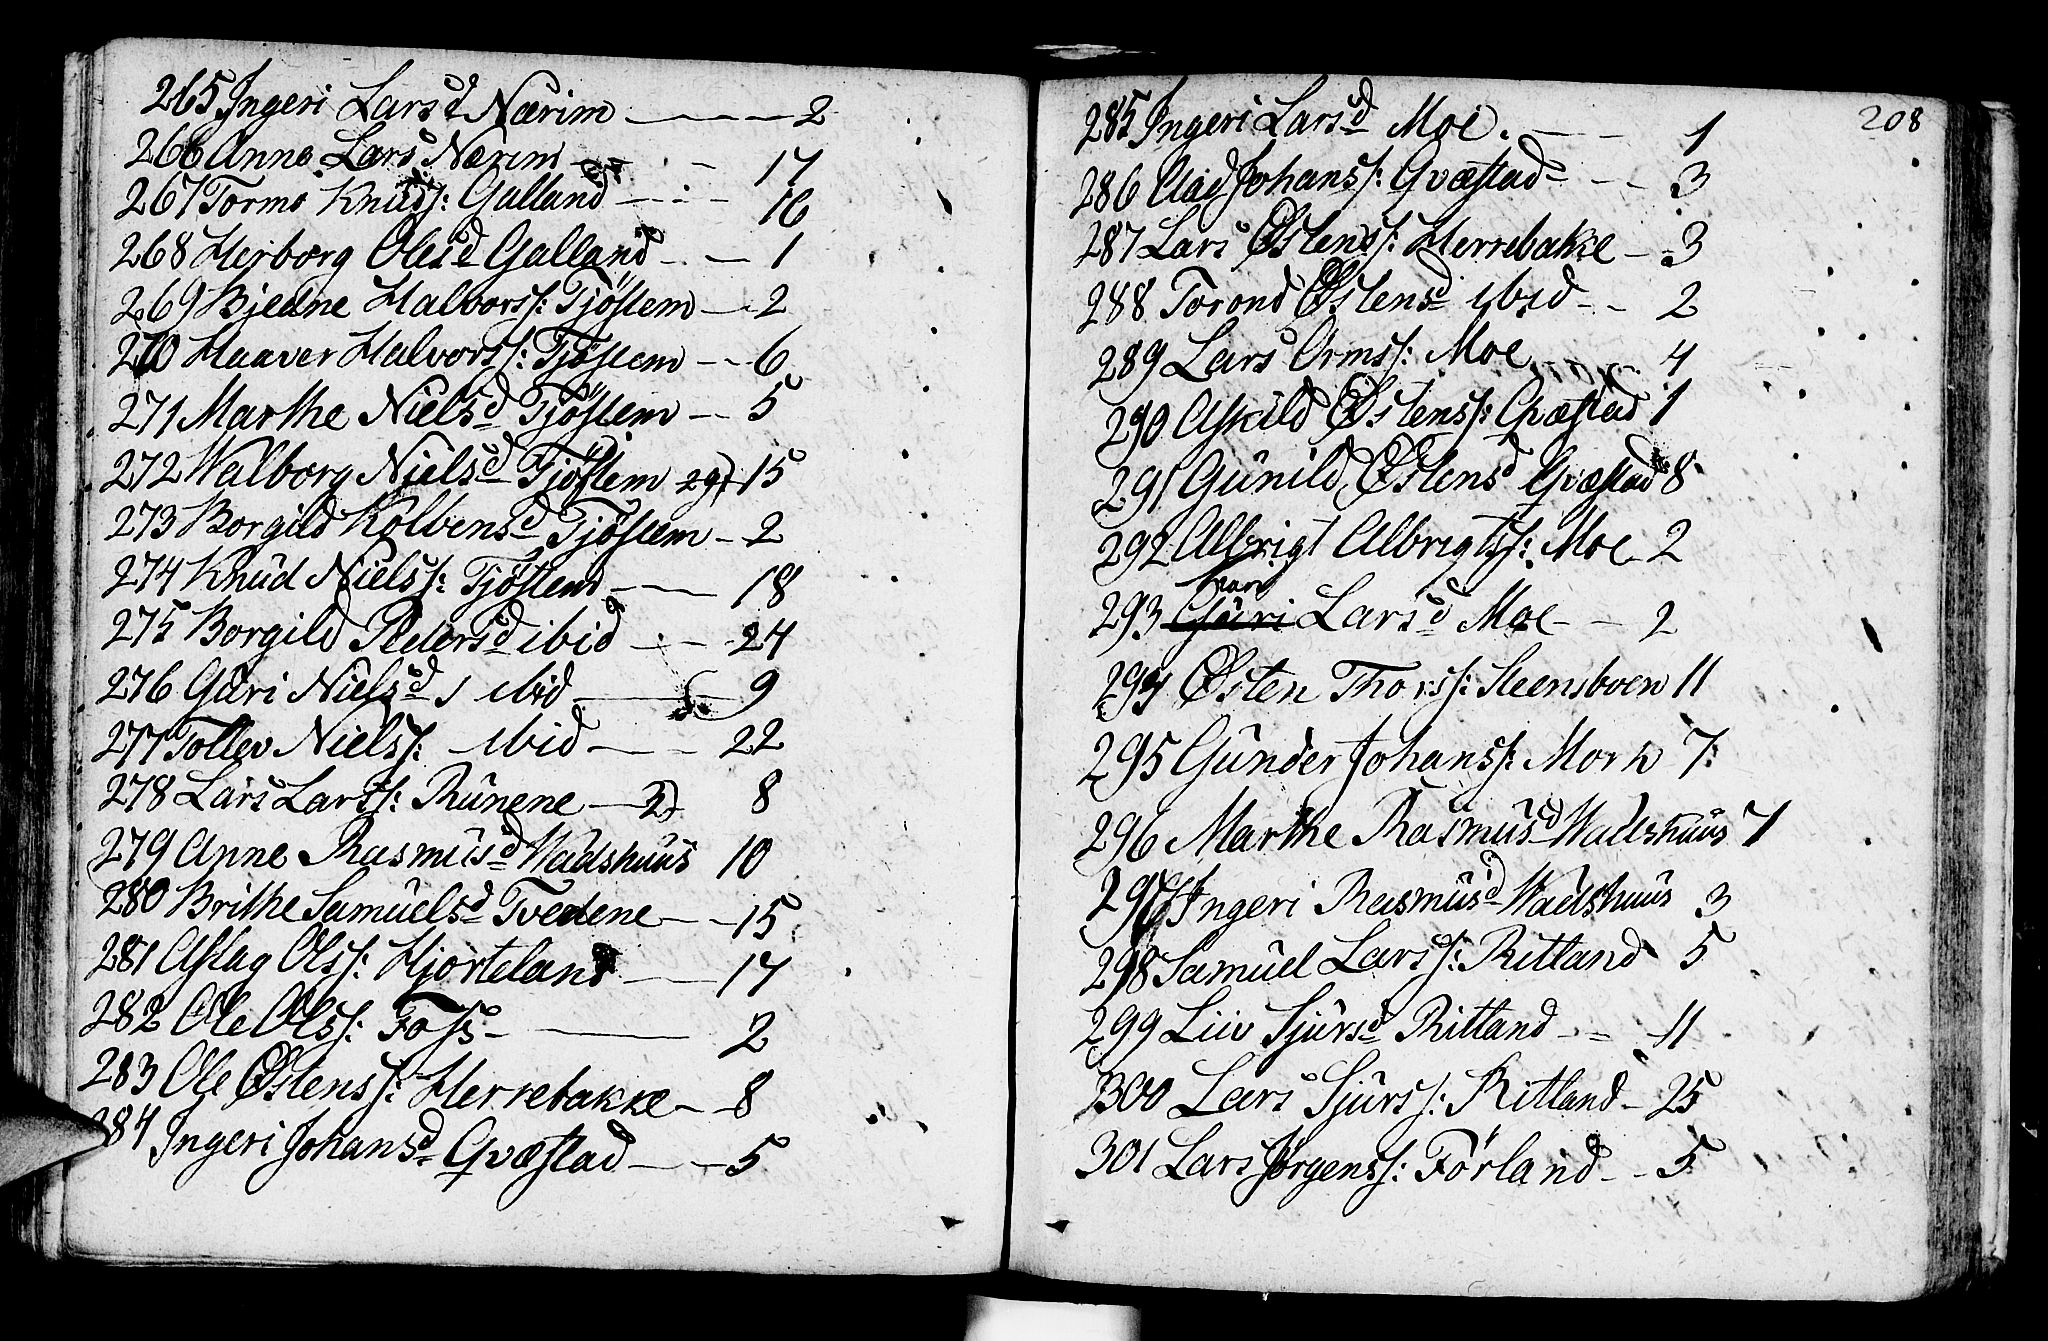 265 Ingeri Larsd Nærim — 2
266 Anna Lars Nærim — 17
267 Tormo Knuds: Galland — 16
268 Herborg Olesd Galland — 1
269 Bjedne Halvorss: Tjöstem — 2
270 Haaver Halvorss: Tjöstem — 6
271 Marthe Nielsd Tjöstem — 5
272 Walborg Nielsd Tjöstem 15
273 Borgild Kolbensd Tjöstem — 2
274 Knud Nielss: Tjöstem — 18
275 Borgild Pedersd ibid — 24
276 Guri Nielsd ibid — 9
277 Tollev Nielss: ibid — 22
278 Lars Larss: Runene — 8
279 Anne Rasmusd Wadshuus 10
280 Brithe Samuelsd Tvedene — 15
281 Aslag Olss: Hjorteland — 17
282 Ole Olss: Foss — 2
283 Ole Østenss: Herrebakke — 8
284 Ingeri Johansd Qvæstad — 5
208
285 Ingeri Larsd Moe. — 1
286 Johanss: Qvæstad — 3
287 Lars Østenss: Herrebakke — 3
288 Torond Østensd ibid — 2
289 Lars Ormss: Moe 4
290 Askild Østenss: Qvæstad 1
291 Gunild Østensd Qvæstad 8
292 Albrigt Albrigtss: Moe 2
293 Guri Larsd Moe — 2
294 Østen Thorss: Steensboen 11
295 Gunder Johanss: Mork 7:
296 Marthe Rasmusd Wadshuus 7
297 Ingeri Rasmusd Wadshuus 3
298 Samuel Larss: Ritland 5
299 Liiv Sjursd Ritland — 11
300 Lars Sjurss: Ritland — 25
301 Lars Jørgenss: Förland — 5